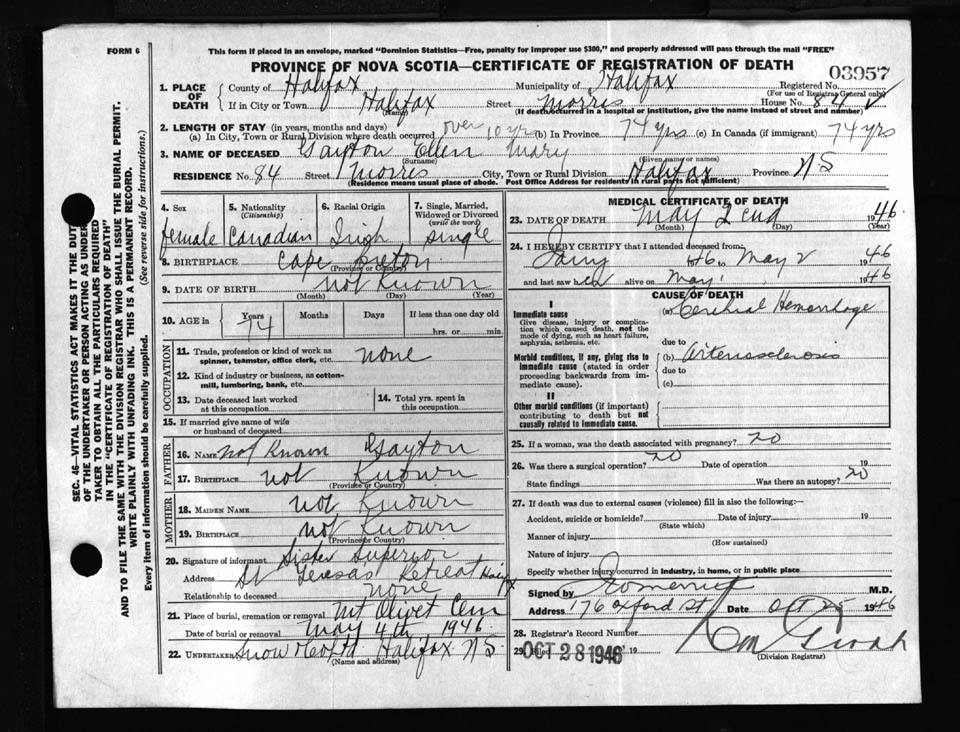 FORM 6
This form if placed in an envelope, marked "Dominion Statistics—Free, penalty for improper use $300," and properly addressed will pass through the mail "FREE"
PROVINCE OF NOVA SCOTIA—CERTIFICATE OF REGISTRATION OF DEATH
03957
1. PLACE OF DEATH { County of Halifax Municipality of Halifax Registered No.
(For use of Registrar General only)
If in City or Town Halifax Street Morris House No. 84
(Name) (If death occurred in a hospital or institution, give the name instead of street and number)
2. LENGTH OF STAY (in years, months and days)
(a) In City, Town or Rural Division where death occurred over 10 yrs (b) In Province 74 yrs (c) In Canada (if immigrant) 74 yrs
3. NAME OF DECEASED Gayton Ellen Mary
(Surname) (Given name or names)
RESIDENCE No. 84 Street Morris City, Town or Rural Division Halifax Province NS
(Residence means usual place of abode. Post Office Address for residents in rural parts not sufficient)
SEC. 46—VITAL STATISTICS ACT MAKES IT THE DUTY
OF THE UNDERTAKER OR PERSON ACTING AS UNDER-
TAKER TO OBTAIN ALL THE PARTICULARS REQUIRED
IN THE "CERTIFICATE OF REGISTRATION OF DEATH"
AND TO FILE THE SAME WITH THE DIVISION REGISTRAR WHO SHALL ISSUE THE BURIAL PERMIT.
WRITE PLAINLY WITH UNFADING INK. THIS IS A PERMANENT RECORD.
Every item of information should be carefully supplied. (See reverse side for instructions.)
4. Sex female
5. Nationality (Citizenship) Canadian
6. Racial Origin Irish
7. Single, Married, Widowed or Divorced (write the word) single
8. BIRTHPLACE Cape Breton
(Province or Country)
9. DATE OF BIRTH not Known
(Month) (Day) (Year)
10. AGE in Years 74 Months Days If less than one day old
hrs. or min.
OCCUPATION
11. Trade, profession or kind of work as spinner, teamster, office clerk, etc. none
12. Kind of industry or business, as cotton-mill, lumbering, bank, etc.
13. Date deceased last worked at this occupation
14. Total yrs. spent in this occupation
15. If married give name of wife or husband of deceased
FATHER
16. NAME not Known Gayton
17. BIRTHPLACE not Known
(Province or Country)
MOTHER
18. MAIDEN NAME not Known
19. BIRTHPLACE not Known
(Province or Country)
20. Signature of informant Sister Superior
Address St Teresas Retreat Halifax
Relationship to deceased none
21. Place of burial, cremation or removal Mt Olivet Cem
Date of burial or removal May 4th 1946
22. UNDERTAKER Snow & Co Ltd Halifax NS
(Name and address)
MEDICAL CERTIFICATE OF DEATH
23. DATE OF DEATH May 2 1946
(Month) (Day) (Year)
24. I HEREBY CERTIFY that I attended deceased from:
46 to May 2 1946
and last saw h alive on May 1 1946
CAUSE OF DEATH
I
Immediate cause
Give disease, injury or complication which caused death, not the mode of dying, such as heart failure, asphyxia, asthenia, etc.
(a) Cerebral Hemorrhage
due to
Morbid conditions, if any, giving rise to immediate cause (stated in order proceeding backwards from immediate cause).
(b) Arteriosclerosis
due to
(c)
II
Other morbid conditions (if important) contributing to death but not causally related to immediate cause.
25. If a woman, was the death associated with pregnancy? no
26. Was there a surgical operation? no Date of operation 19
State findings Was there an autopsy? no
27. If death was due to external causes (violence) fill in also the following:—
Accident, suicide or homicide? Date of injury 19
(State which)
Manner of injury
(How sustained)
Nature of injury
Specify whether injury occurred in industry, in home, or in public place
Signed by M.D.
Address 176 Oxford St Date Oct 25 1946
28. Registrar's Record Number
29. Filed OCT 28 1946 19
(Division Registrar)